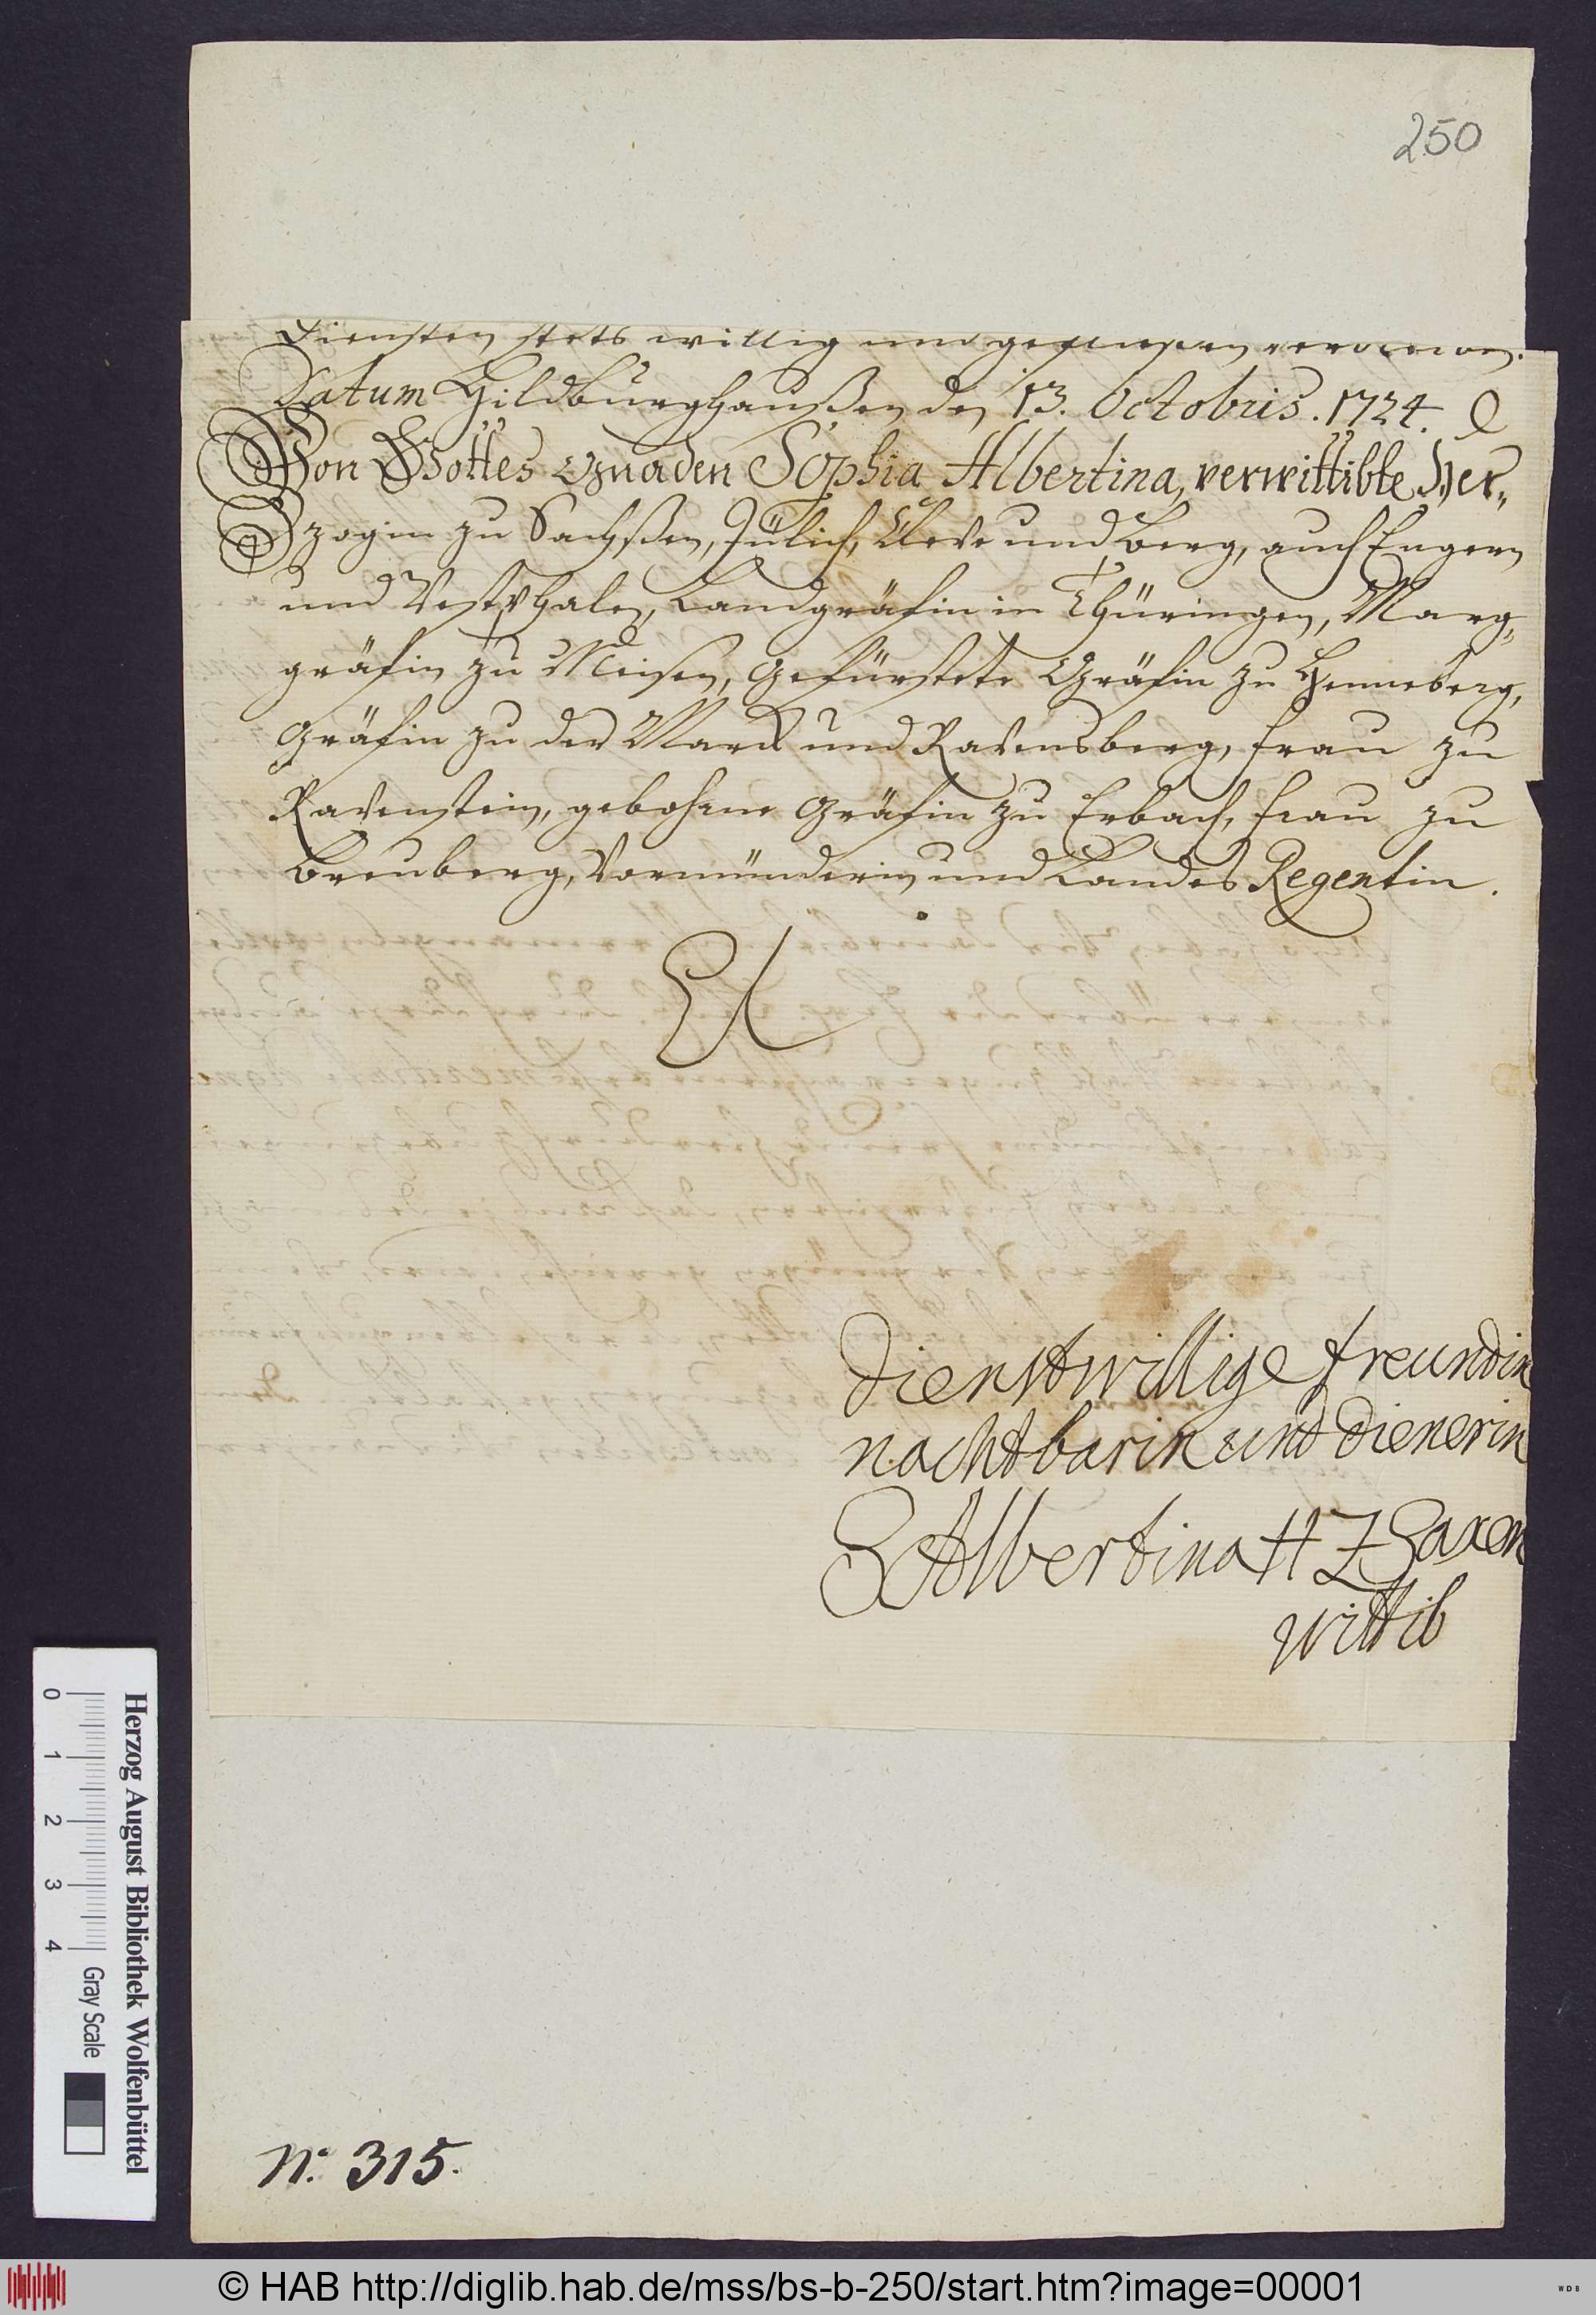 250
Diensten stets willig und geflissen verbleiben.
Datum Hildburghaußen den 13. Octobris. 1724.
Von Gottes Gnaden Sophia Albertina, verwittibte Her-
zogin zu Sachßen, Jülich, Cleve und Berg, auch Engern
und Westphalen, Landgräfin in Thüringen, Marg-
gräfin zu Meisen, Gefürstete Gräfin zu Henneberg,
Gräfin zu der Marck und Ravensberg, Frau zu
Ravenstein, gebohrne Gräfin zu Erbach, Frau zu
Breuberg, Vormünderin und Landes Regentin.
dienstwillige freundin
nachtbarin und dienerin
S Albertina H Z Saxen
wittib
N: 315.
Herzog August Bibliothek Wolfenbüttel
0 1 2 3 4 Gray Scale
© HAB http://diglib.hab.de/mss/bs-b-250/start.htm?image=00001
WDB